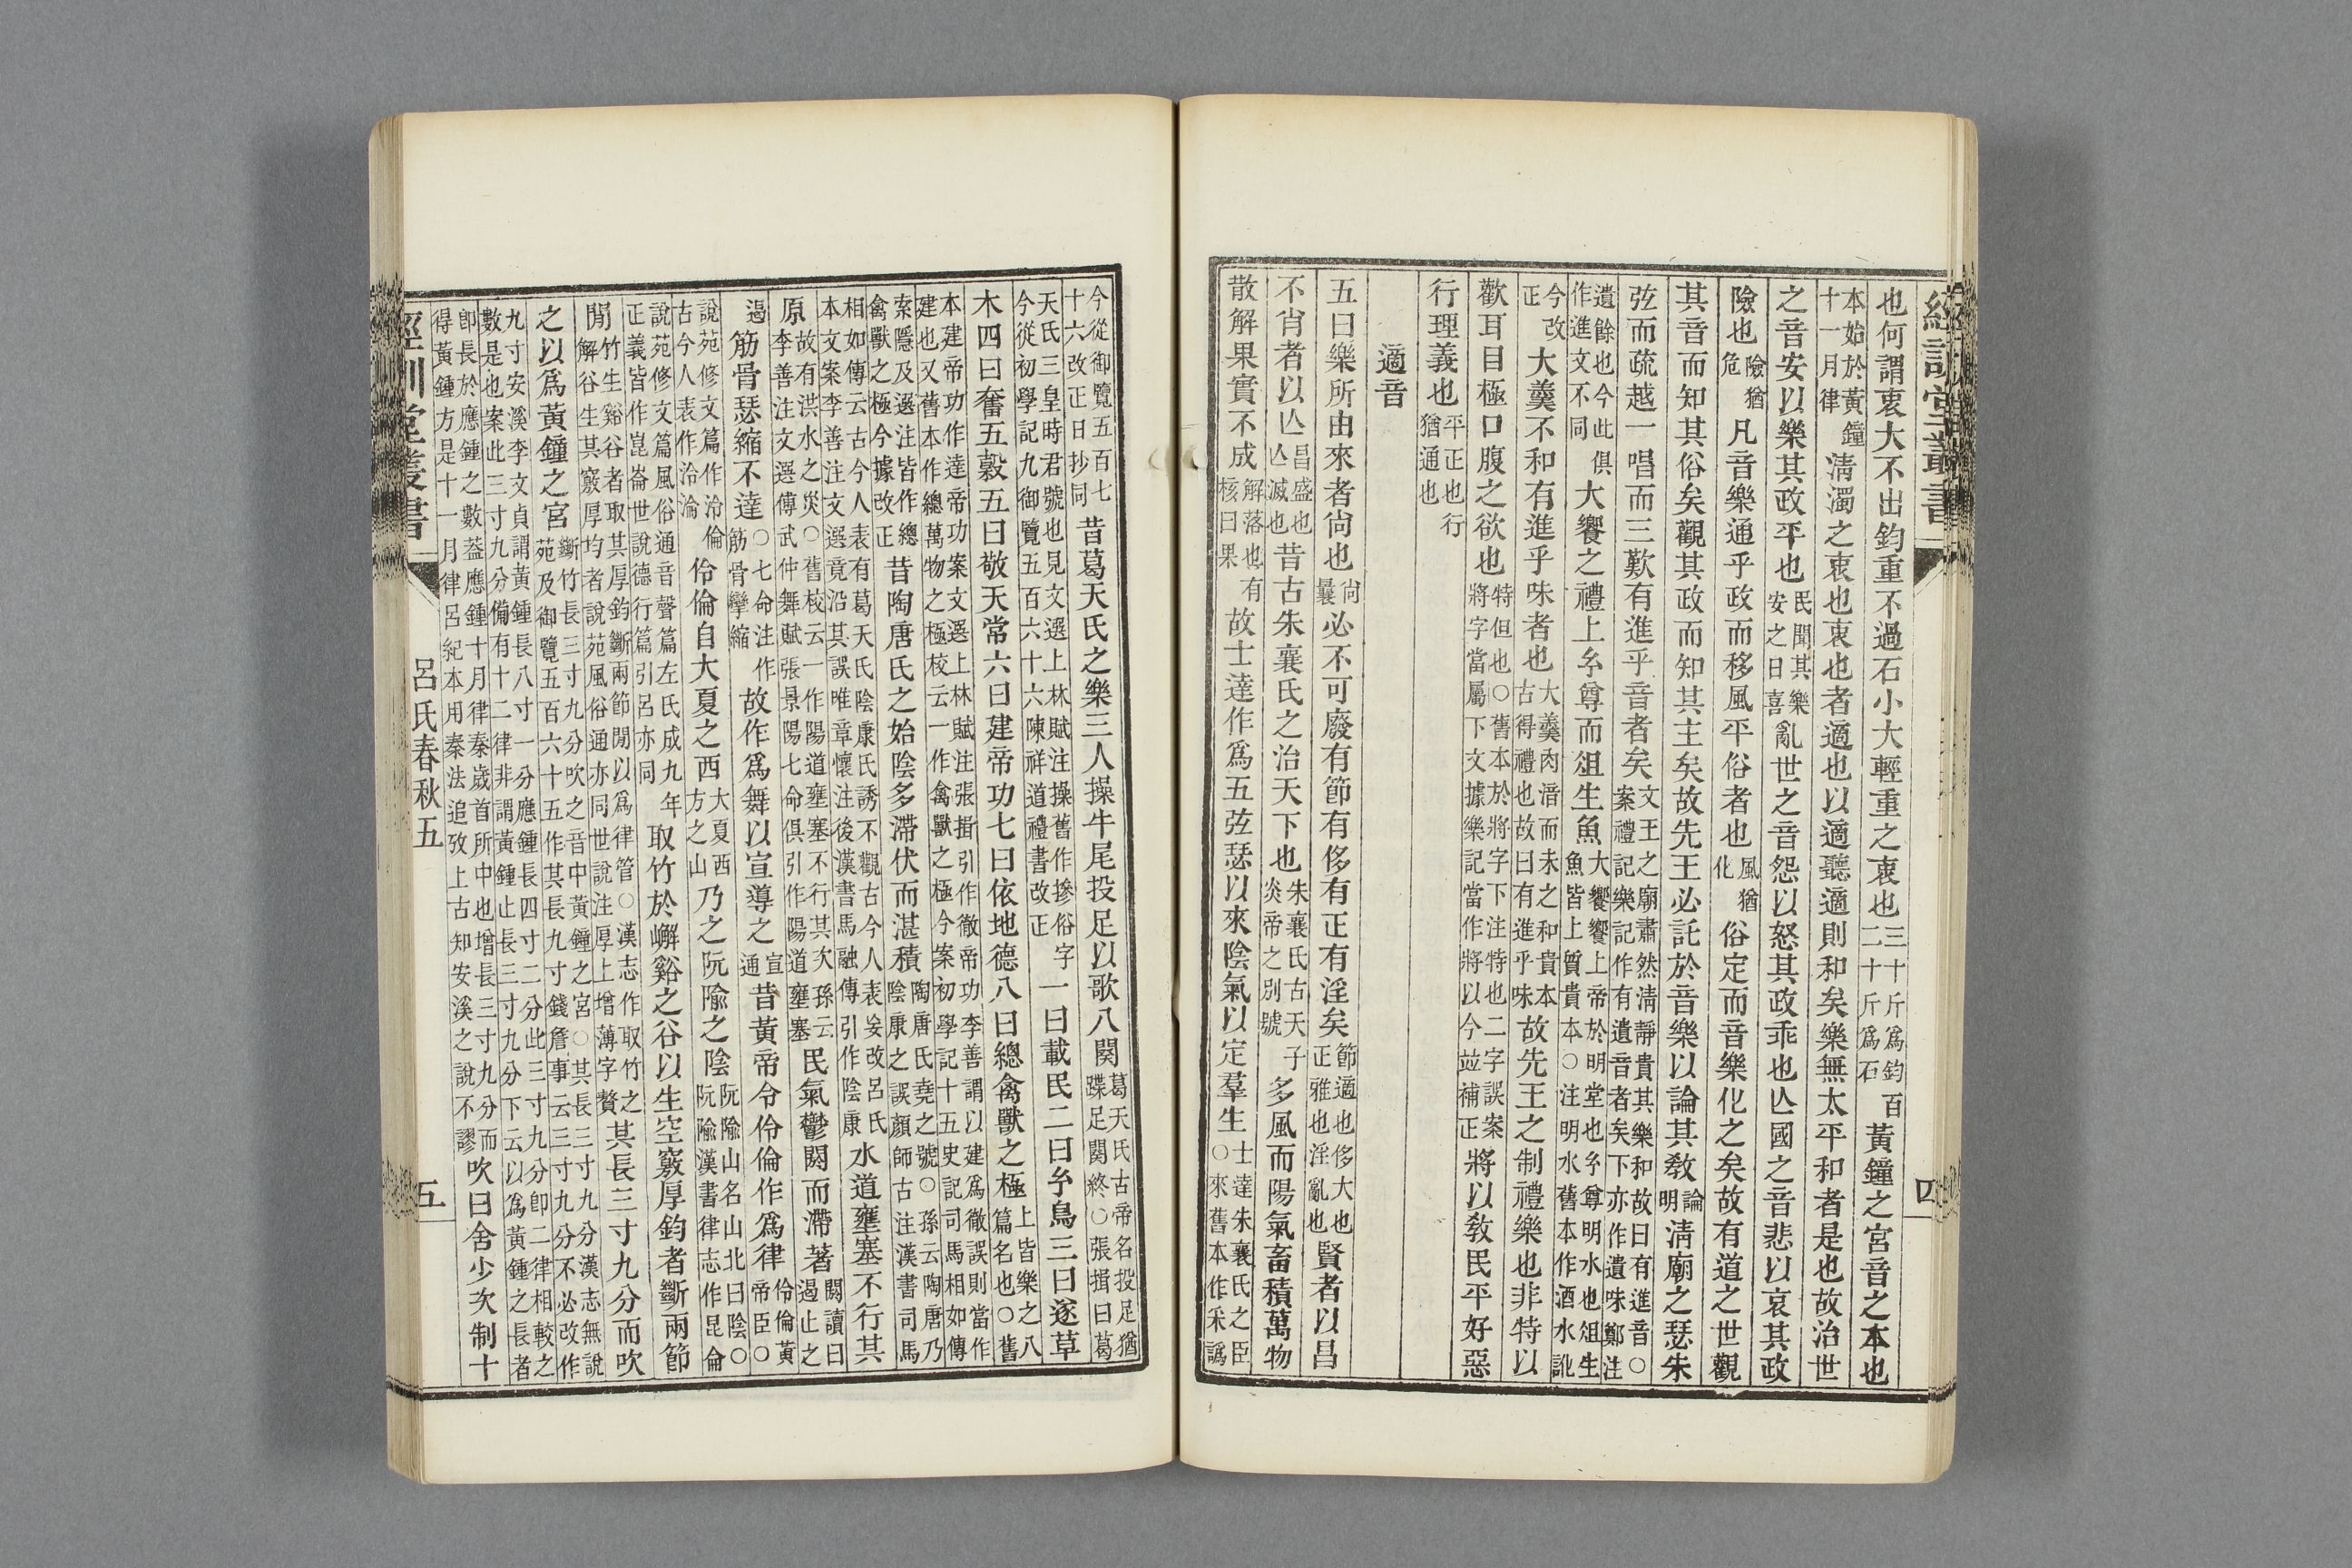 經訓堂叢書 四
也何謂衷大不出鈞重不過石小大輕重之衷也三十斤爲鈞百二十斤爲石黃鐘之宮音之本也
本始於黃鐘十一月律淸濁之衷也衷也者適也以適聽適則和矣樂無太平和者是也故治世
之音安以樂其政平也民聞其樂安之曰喜亂世之音怨以怒其政乖也亾國之音悲以哀其政
險也險猶危凡音樂通乎政而移風平俗者也風猶化俗定而音樂化之矣故有道之世觀
其音而知其俗矣觀其政而知其主矣故先王必託於音樂以論其敎論明淸廟之瑟朱
弦而疏越一唱而三歎有進乎音者矣文王之廟肅然淸靜貴其樂和故曰有進音○案禮記樂記作有遺音者矣下亦作遺味鄭注
遺餘也今此俱作進文不同大饗之禮上玄尊而俎生魚大饗饗上帝於明堂也玄尊明水也俎生魚皆上質貴本○注明水舊本作酒水訛
今改正大羹不和有進乎味者也大羹肉湇而未之和貴本古得禮也故曰有進乎味故先王之制禮樂也非特以
歡耳目極口腹之欲也特但也○舊本於將字下注特也二字誤案將字當屬下文據樂記當作將以今竝補正將以敎民平好惡
行理義也平正也行猶通也
適音
五曰樂所由來者尙也尙曩必不可廢有節有侈有正有淫矣節適也侈大也正雅也淫亂也賢者以昌
不肖者以亾昌盛也亾滅也昔古朱襄氏之治天下也朱襄氏古天子炎帝之別號多風而陽氣畜積萬物
散解果實不成解落也有核曰果故士達作爲五弦瑟以來陰氣以定羣生士達朱襄氏之臣○來舊本作采譌
今從御覽五百七十六改正日抄同昔葛天氏之樂三人操牛尾投足以歌八闋葛天氏古帝名投足猶蹀足闋終○張揖曰葛
天氏三皇時君號也見文選上林賦注操舊作摻俗字今從初學記九御覽五百六十六陳祥道禮書改正一曰載民二曰玄鳥三曰遂草
木四曰奮五穀五曰敬天常六曰建帝功七曰依地德八曰總禽獸之極上皆樂之八篇名也○舊
本建帝功作達帝功案文選上林賦注張揖引作徹帝功李善謂以建爲徹誤則當作建也又舊本作總萬物之極校云一作禽獸之極今案初學記十五史記司馬相如傳
索隱及選注皆作總禽獸之極今據改正昔陶唐氏之始陰多滯伏而湛積陶唐氏堯之號○孫云陶唐乃陰康之誤顏師古注漢書司馬
相如傳云古今人表有葛天氏陰康氏誘不觀古今人表妄改呂氏本文案李善注文選竟沿其誤唯章懷注後漢書馬融傳引作陰康水道壅塞不行其
原故有洪水之災○舊校云一作陽道壅塞不行其次孫云李善注文選傅武仲舞賦張景陽七命俱引作陽道壅塞民氣鬱閼而滯著閼讀曰遏止之
遏筋骨瑟縮不達○七命注作筋骨攣縮故作爲舞以宣導之宣通昔黃帝令伶倫作爲律伶倫黃帝臣○
說苑修文篇作泠倫古今人表作泠淪伶倫自大夏之西大夏西方之山乃之阮隃之陰阮隃山名山北曰陰○阮隃漢書律志作昆侖
說苑修文篇風俗通音聲篇左氏成九年正義皆作崑崙世說德行篇引呂亦同取竹於嶰谿之谷以生空竅厚鈞者斷兩節
閒竹生谿谷者取其厚鈞斷兩節閒以爲律管○漢志作取竹之解谷生其竅厚均者說苑風俗通亦同世說注厚上增薄字贅其長三寸九分而吹
之以爲黃鐘之宮斷竹長三寸九分吹之音中黃鐘之宮○其長三寸九分漢志無說苑及御覽五百六十五作其長九寸錢詹事云三寸九分不必改作
九寸安溪李文貞謂黃鍾長八寸一分應鍾長四寸二分此三寸九分卽二律相較之數是也案此三寸九分備有十二律非謂黃鍾止長三寸九分下云以爲黃鍾之長者
卽長於應鍾之數葢應鍾十月律秦歲首所中也增長三寸九分而得黃鍾方是十一月律呂紀本用秦法追攷上古知安溪之說不謬吹曰舍少次制十
經訓堂叢書 呂氏春秋五 五